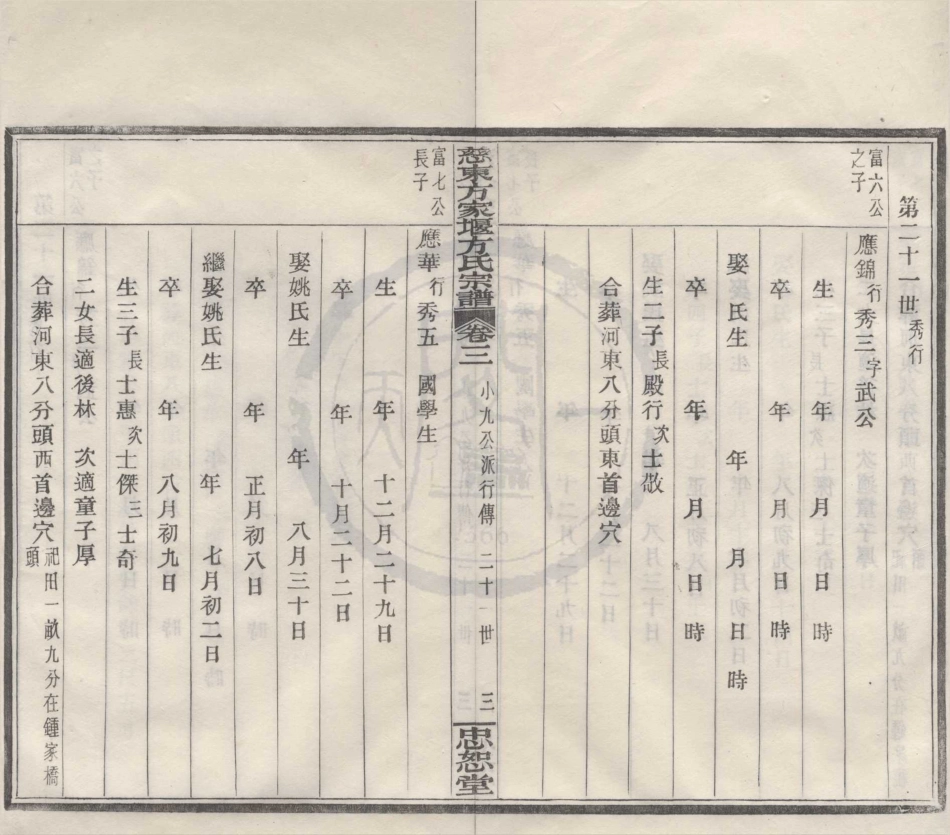 第二十一世秀行
富六公之子
應錦行秀三字武公
生　年　月　日　時
卒　年　月　日　時
娶　氏生　年　月　日　時
卒　年　月　日　時
生二子長殿行次士敬
合葬河東八分頭東首邊穴
慈東方家堰方氏宗譜　卷三　小九公派行傳　二十一世　三　忠恕堂
富七公長子
應華行秀五　國學生
生　年　十二月二十九日
卒　年　十月二十二日
娶姚氏生　年　八月三十日
卒　年　正月初八日
繼娶姚氏生　年　七月初二日
卒　年　八月初九日
生三子長士惠次士傑三士奇
二女長適後林　次適童子厚
合葬河東八分頭西首邊穴祀田一畝九分在鍾家橋頭